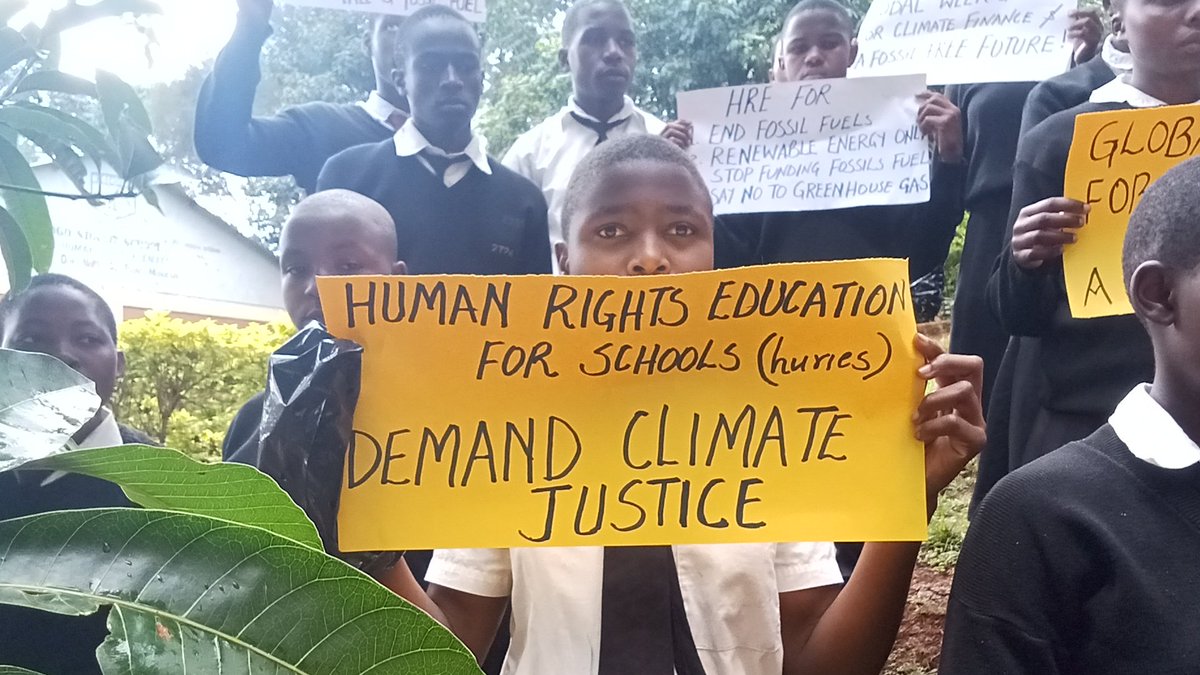 & FOSSIL FUEL
OR CLIMATE FINANCE &
A FOSSIL FREE FUTURE!
HRE FOR
END FOSSIL FUELS
RENEWABLE ENERGY ONLY
STOP FUNDING FOSSILS FUEL
SAY NO TO GREENHOUSE GAS
GLOBA
FOR
A
HUMAN RIGHTS EDUCATION
FOR SCHOOLS (huries)
DEMAND CLIMATE
JUSTICE